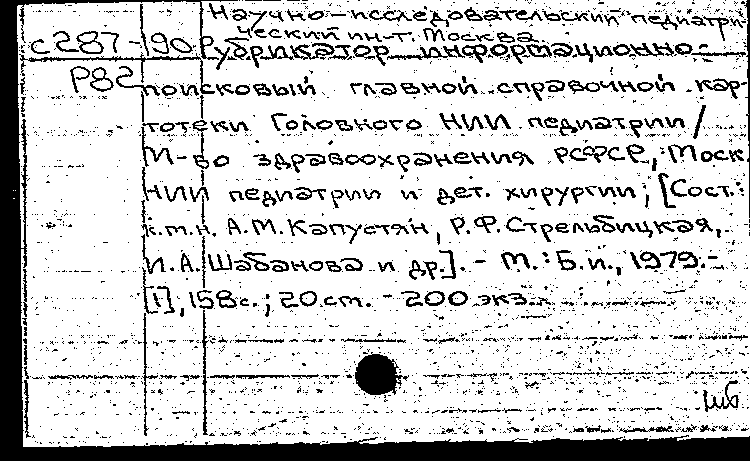 Научно-исследовательский педиатри
ческий ин-т. Москва.
с287-190 Рубрикатор информационно-
Р82 поисковый главной справочной кар-
тотеки Головного НИИ педиатрии /
М-во здравоохранения РСФСР, Моск.
НИИ педиатрии и дет. хирургии; [Сост.:
к.т.н. А.М. Капустян, Р.Ф. Стрельбицкая,
И.А. Шабанова и др.]. - М.: Б.и., 1979.-
[1], 158 с.; 20 см. - 200 экз.
шб